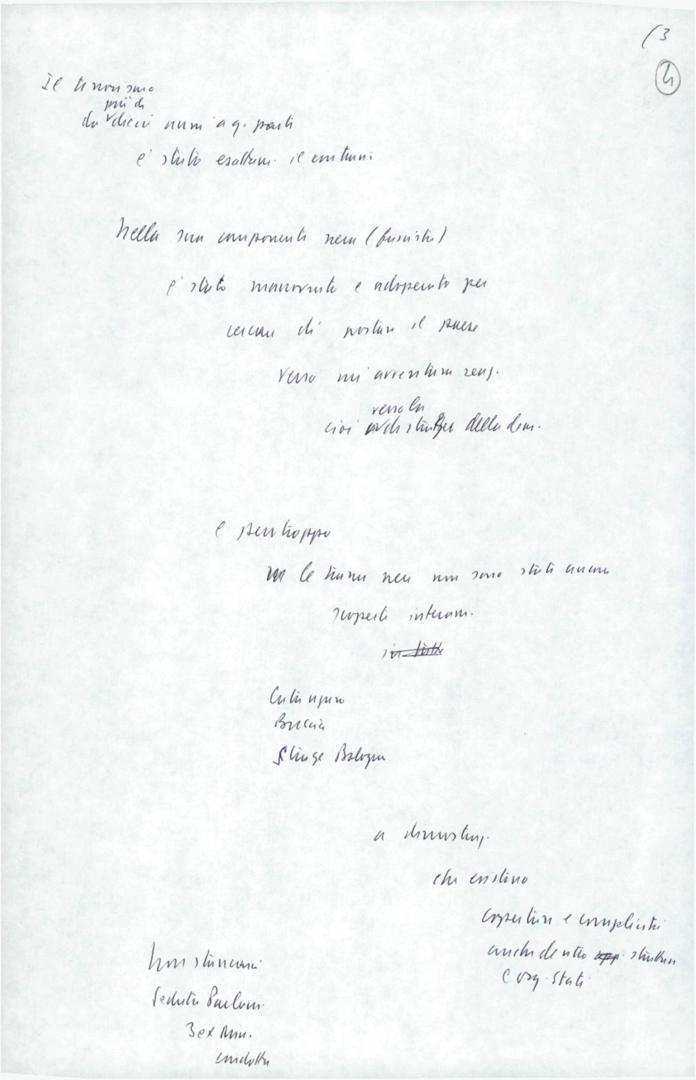 (3
4
Il terrorismo
più di
da dieci anni a q. parte
è stato esattam. il contrari
Nella sua componente nera (fascista)
è stato manovrato e adoperato per
cercare di portare il paese
verso un'avventura reaz.
verso la
cioè della dem.
e purtroppo
le trame nere non sono state ancora
scoperte interam.
in tutto
Catanzaro
Brescia
Strage Bologna
a dimostraz.
che esistono
coperture e complicità
anche dentro app strutture
e org. Stato
Non stancarsi
Seduta Parlam.
3 ex Min.
condotta